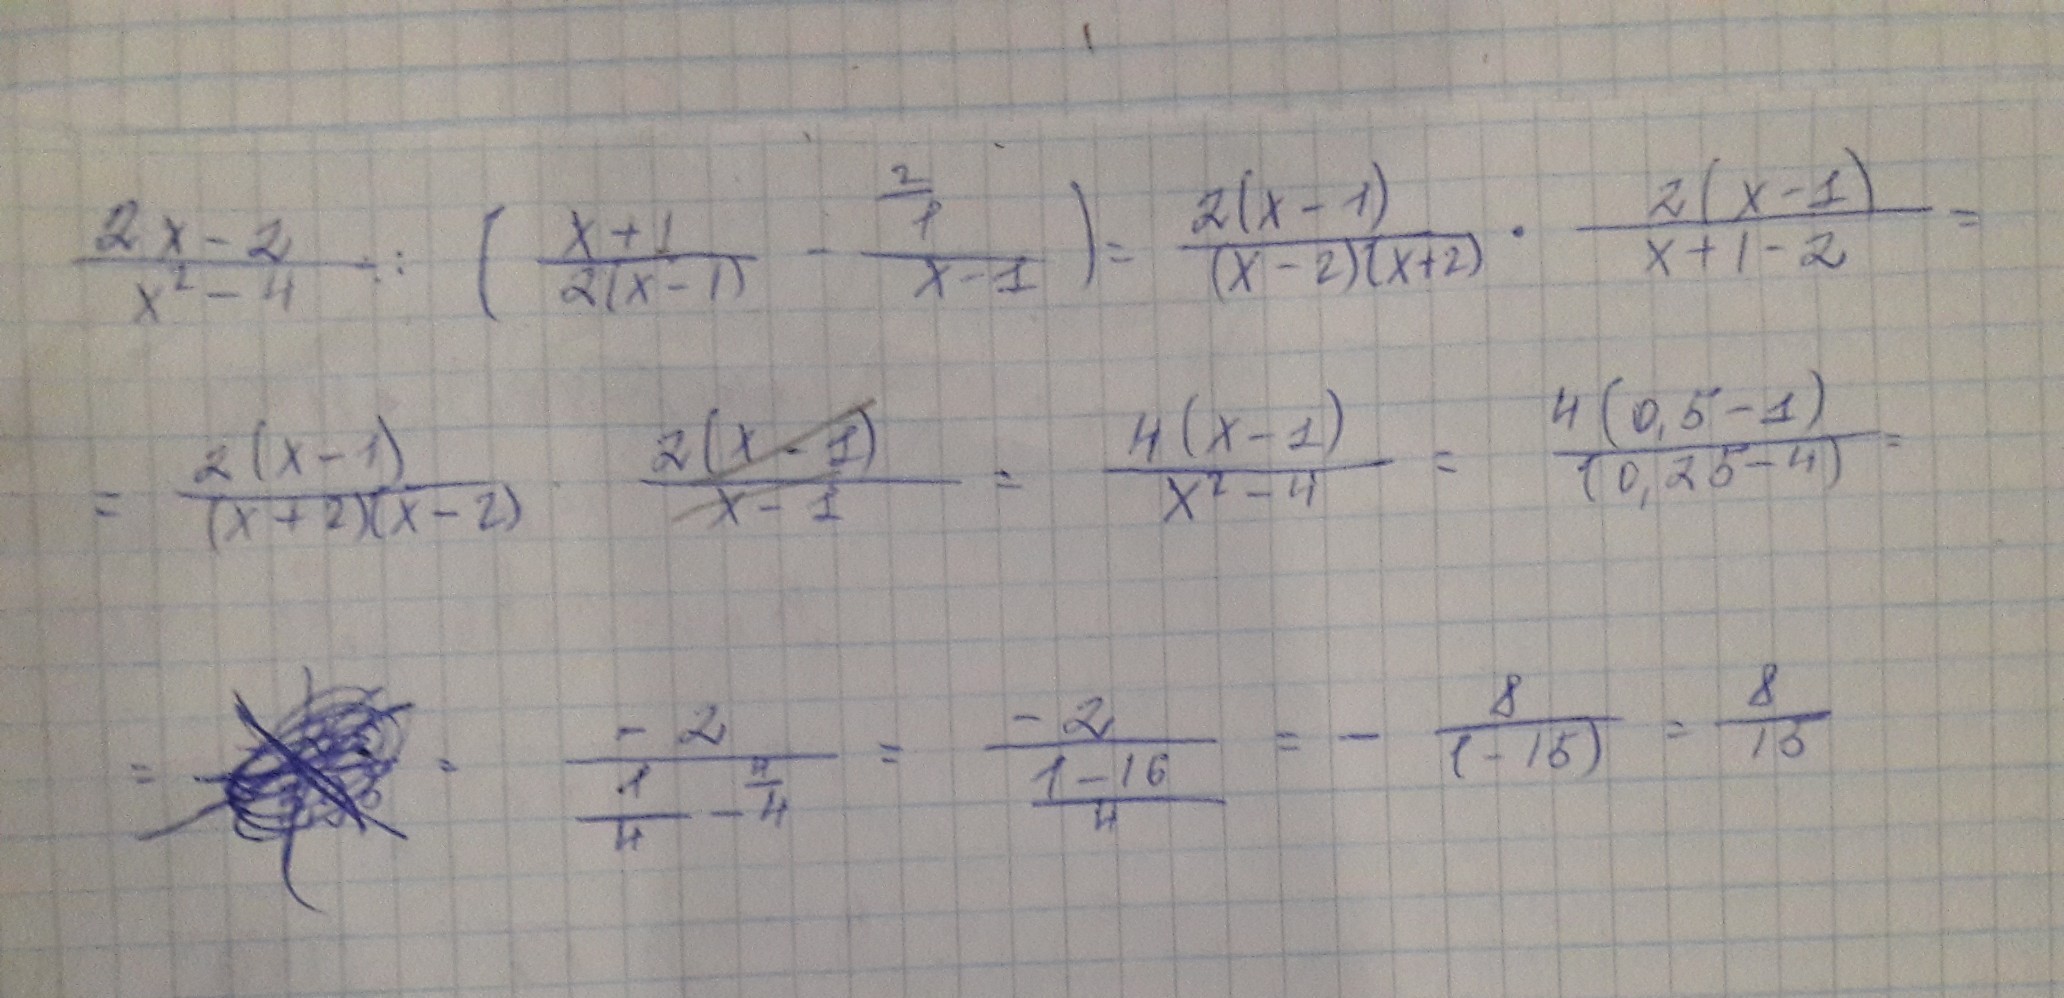 (2x-2)/(x²-4) : ( (x+1)/(2(x-1)) - 1/(x-1) ²⁄ ) = 2(x-1)/((x-2)(x+2)) · 2(x-1)/(x+1-2) =
= 2(x-1)/((x+2)(x-2)) · 2(x-1)/(x-1) = 4(x-1)/(x²-4) = 4(0,5-1)/(0,25-4) =
= = -2/(1/4 - 4/4) = -2/((1-16)/4) = - 8/(1-15) = 8/15